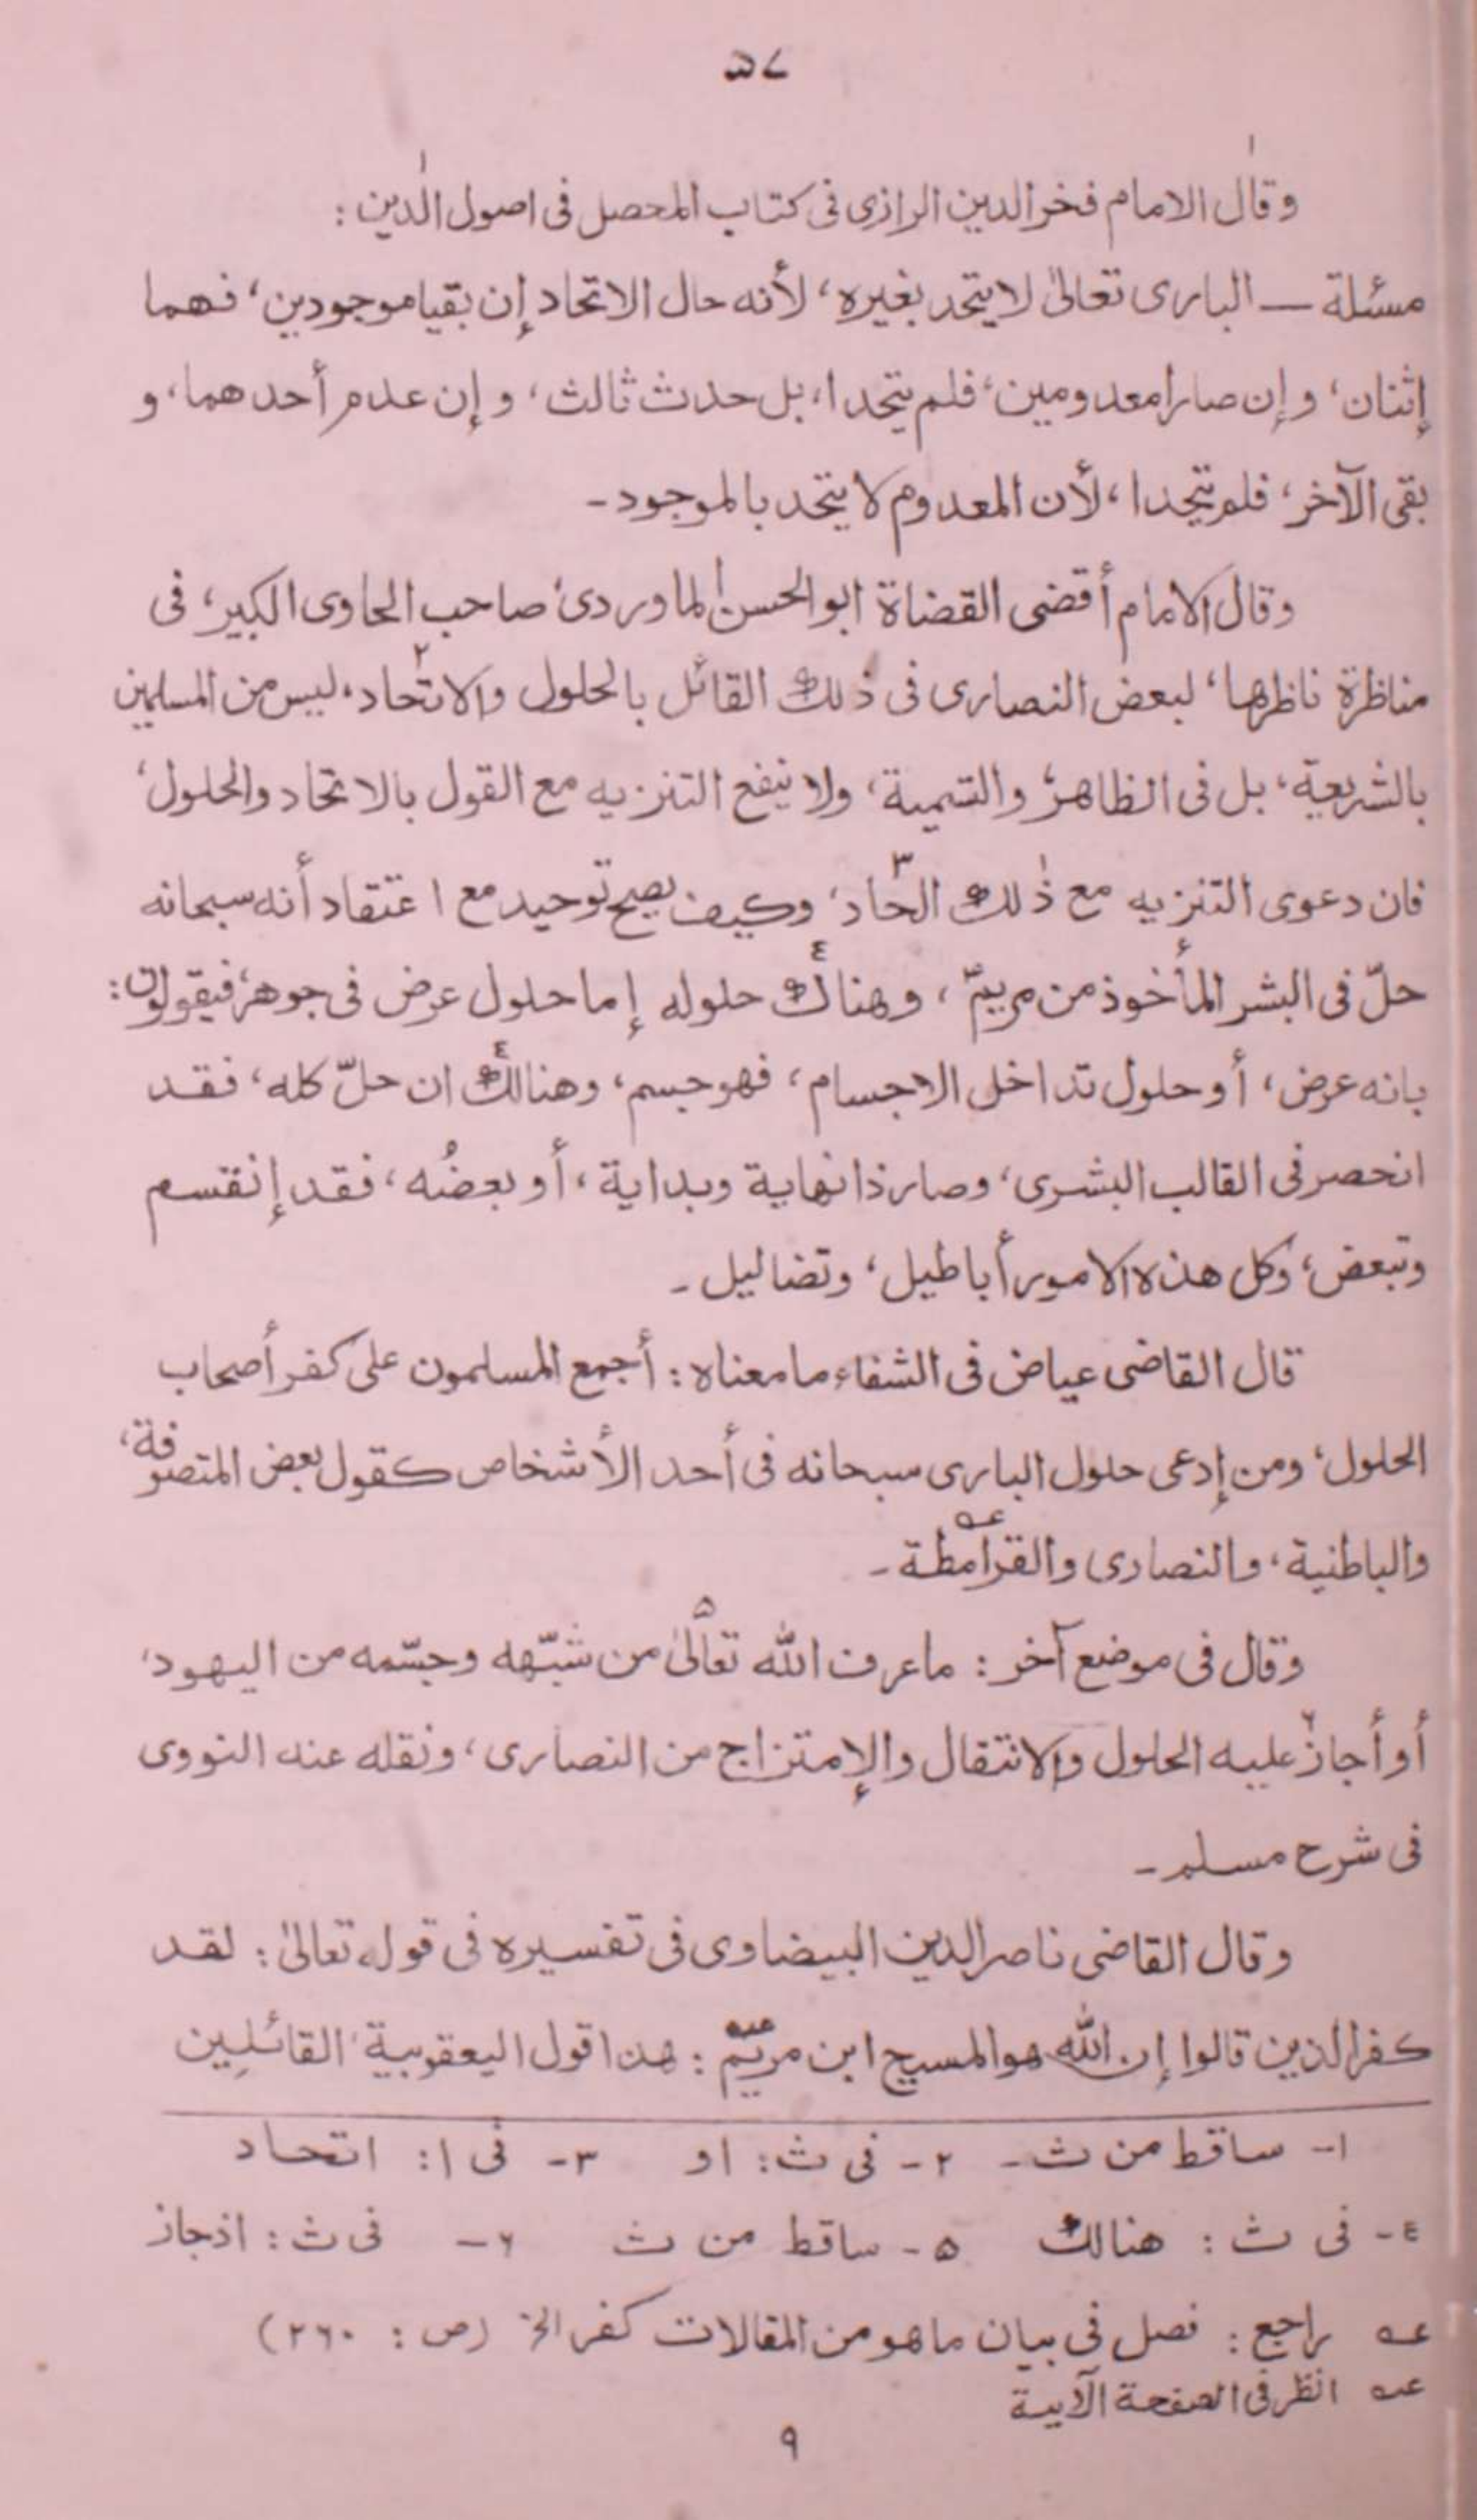 ٥٧
وقال الامام فخر الدين الرازى فى كتاب المحصل فى اصول الدين :
مسئلة ــ البارى تعالىٰ لا يتحد بغيره، لأنه حال الاتحاد إن بقيا موجودين، فهما
إثنان، وإن صارا معدومين، فلم يتحدا، بل حدث ثالث، وإن عدم أحدهما، و
بقى الآخر، فلم يتحدا، لأن المعدوم لا يتحد بالموجود ـ
وقال الامام أقضى القضاة ابوالحسن الماوردى صاحب الحاوى الكبير، فى
مناظرة ناظرها، لبعض النصارى فى ذلك القائل بالحلول والاتحاد٢، ليس من المسلمين
بالشريعة، بل فى الظاهر والتسمية، ولا ينفع التنزيه مع القول بالاتحاد والحلول،
فان دعوى التنزيه مع ذٰلك الحّاد٣، وكيف يصح توحيد مع اعتقاد أنه سبحانه
حلّ فى البشر المأخوذ من مريمؑ، وهناك٤ حلوله إما حلول عرض فى جوهر، فيقولون :
بانه عرض، أو حلول تداخل الاجسام، فهو جسم، وهنالك٤ ان حلّ كله، فقد
انحصر فى القالب البشرى، وصار ذا نهاية وبداية، أو بعضُه، فقد إنقسم
وتبعض، وكل هذه الامور أباطيل، وتضاليل ـ
قال القاضى عياض فى الشفاء ما معناه : أجمع المسلمون على كفر أصحاب
الحلول، ومن إدعى حلول البارى سبحانه فى أحد الأشخاص كقول بعض المتصوفة،
والباطنية، والنصارى والقرامطة عـه ـ
وقال فى موضع آخر : ما عرف الله تعالىٰ٥ من شبّهه وجسّمه من اليهود،
أو أجاز٦ عليه الحلول والانتقال والإمتزاج من النصارى، ونقله عنه النووى
فى شرح مسلم ـ
وقال القاضى ناصر الدين البيضاوى فى تفسيره فى قوله تعالىٰ : لقد
كفر الذين قالوا إن الله هو المسيح ابن مريم عـه : هذا قول اليعقوبية القائلين
١- ساقط من ث ـ ٢- فى ث : او ٣- فى ا : اتحاد
٤- فى ث : هنالك ٥- ساقط من ث ٦- فى ث : اذ جاز
عـه راجع : فصل فى بيان ما هو من المقالات كفر الخ (ص : ٢٦٠)
عـه انظر فى الصفحة الآتية
٩